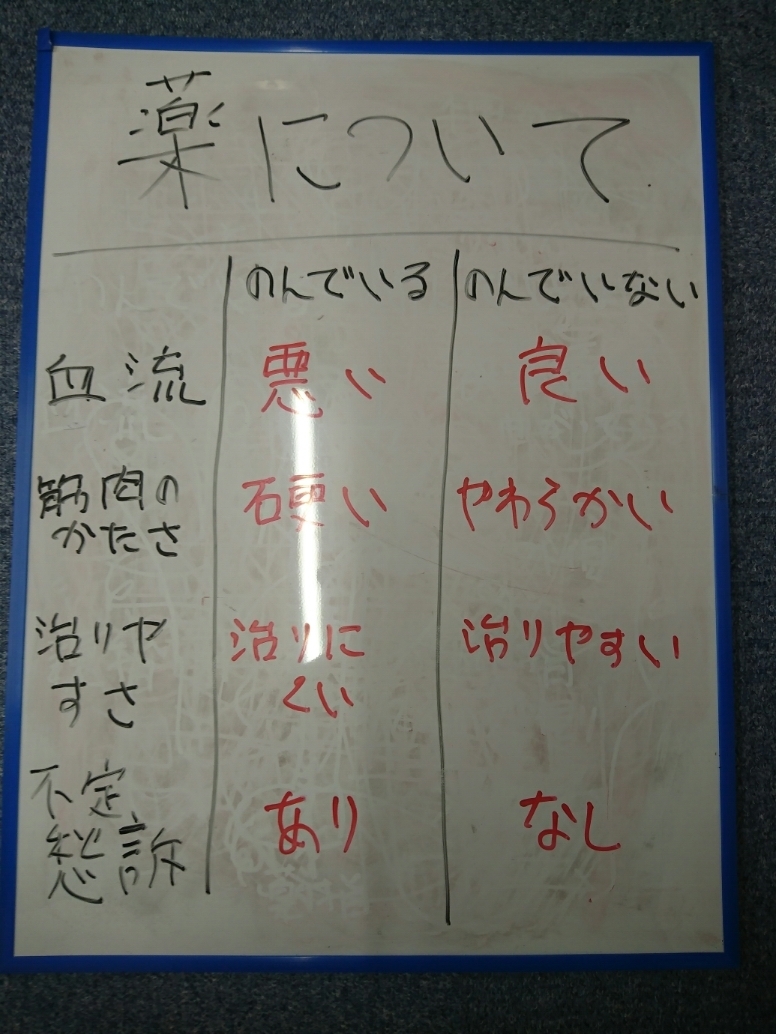 薬について
のんでいる のんでいない
血流 悪い 良い
筋肉の
かたさ 硬い やわらかい
治りや
すさ 治りに
くい 治りやすい
不定
愁訴 あり なし